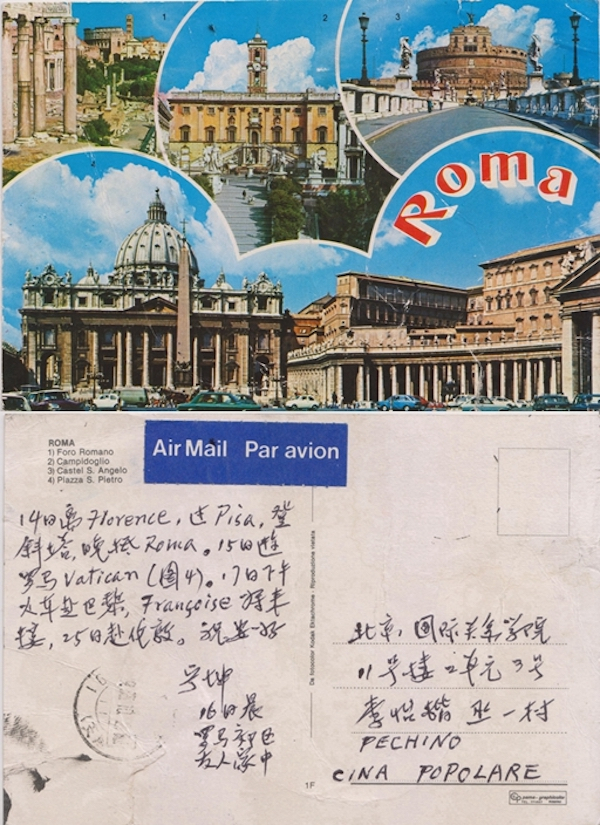 1.
2
3
Roma
ROMA
1) Foro Romano
2) Campidoglio
3) Castel S. Angelo
4) Piazza S. Pietro
Air Mail Par avion
14日离Florence,过Pisa,登
斜塔,晚抵Roma。15日游
罗马Vatican(图4)。17日下午
火车赴巴黎,Françoise 将来
接,25日赴伦敦。祝安好
宁坤
16日晨
罗马郊区
友人家中
De fotocolor Kodak Ektachrome - Riproduzione vietata
北京,国际关系学院
11号楼2单元3号
李怡楷 一村
PECHINO
CINA POPOLARE
1F